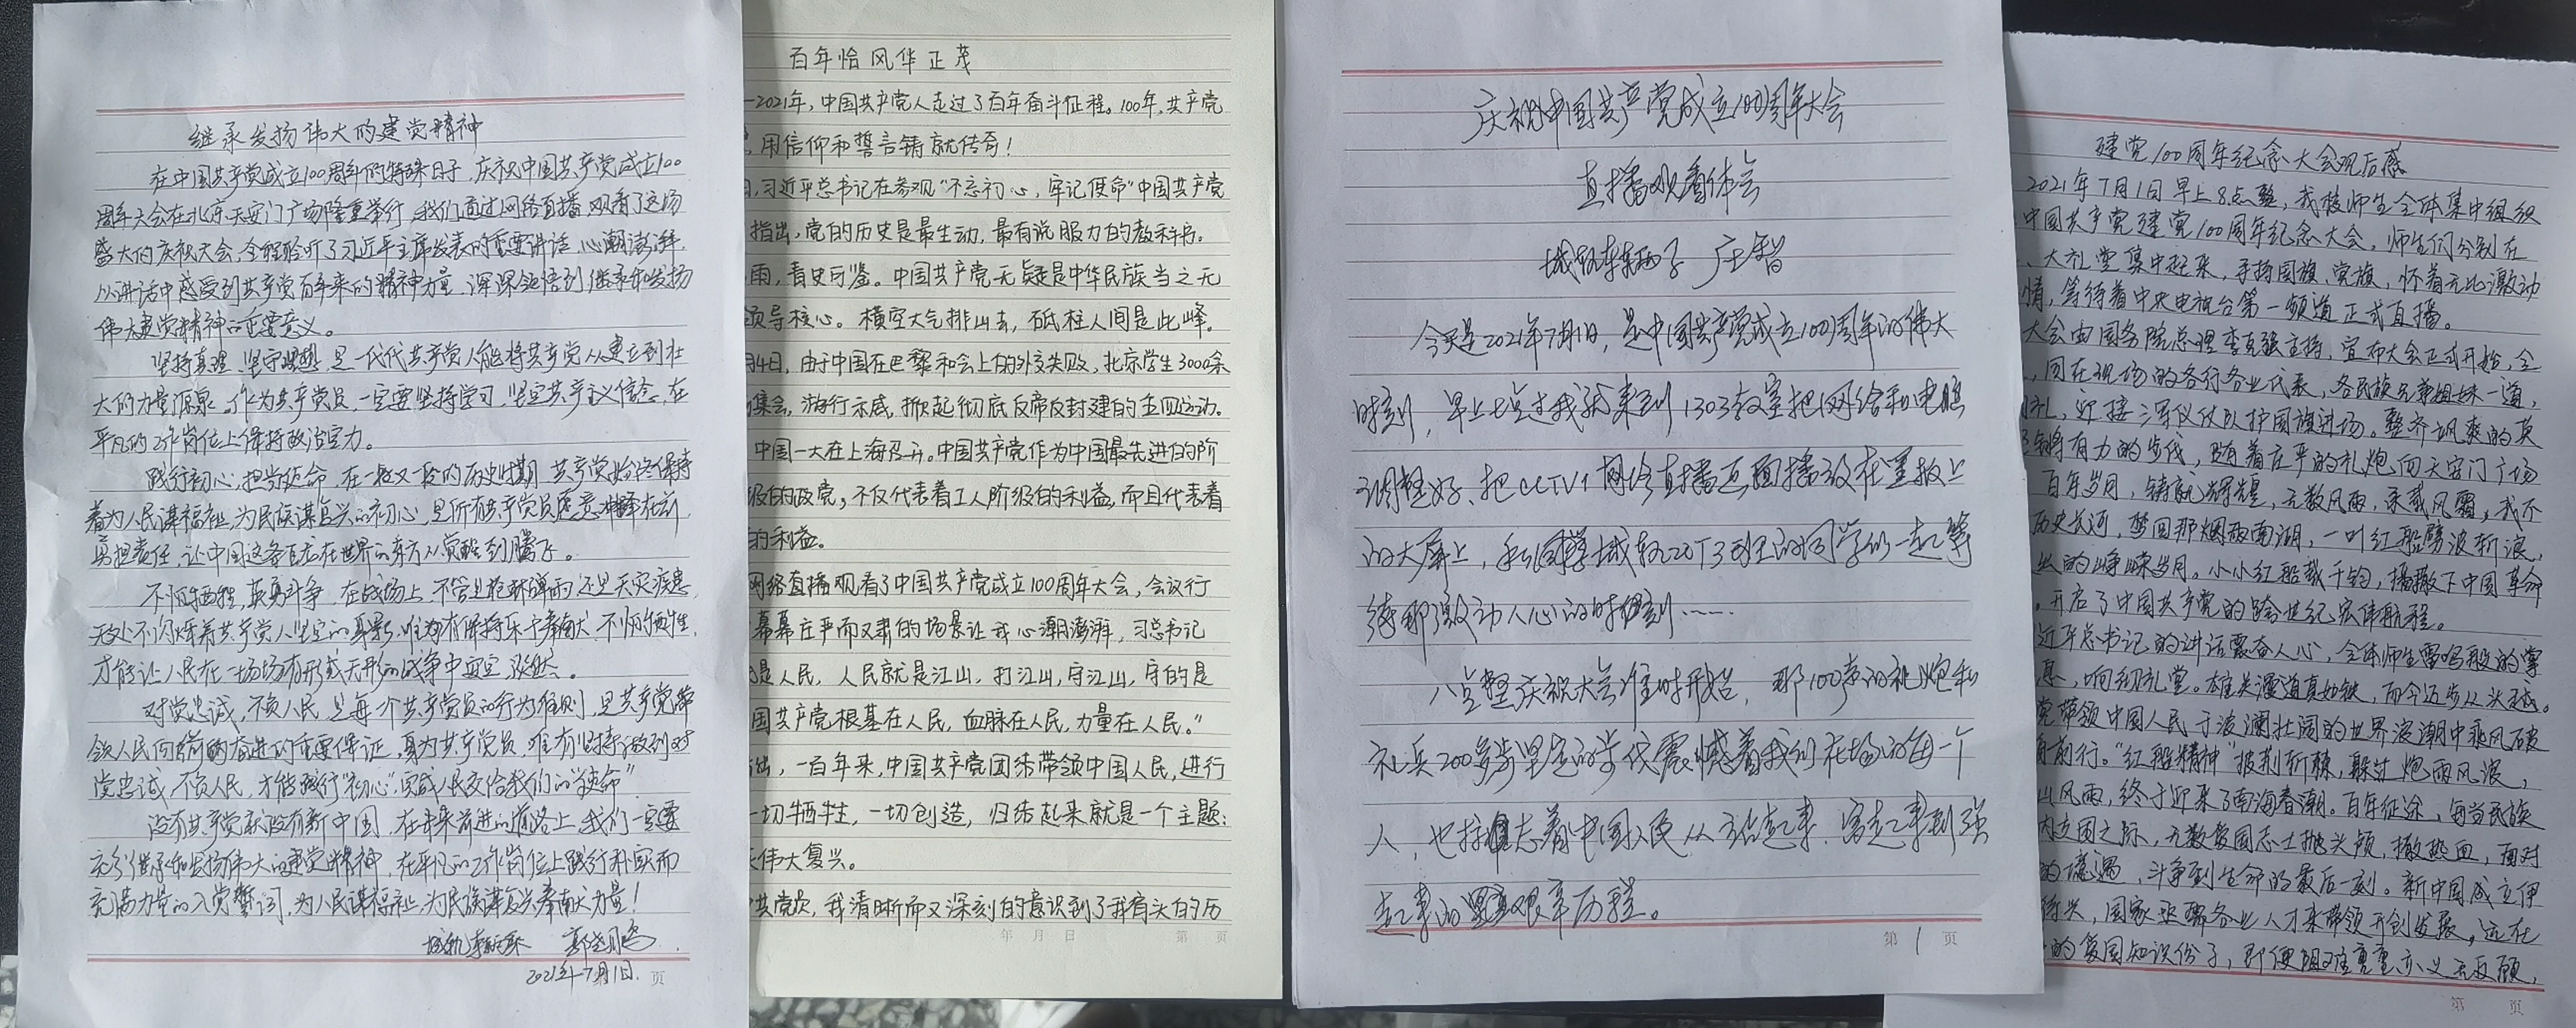 继承发扬伟大的建党精神
在中国共产党成立100周年的特殊日子,庆祝中国共产党成立100
周年大会在北京天安门广场隆重举行,我们通过网络直播观看了这场
盛大的庆祝大会,全程聆听了习近平主席发表的重要讲话,心潮澎湃.
从讲话中感受到共产党百年来的精神力量,深深领悟到继承和发扬
伟大建党精神的重要意义。
坚持真理、坚守理想,是一代代共产党人能将共产党从建立到壮
大的力量源泉,作为共产党员,一定要坚持学习,坚定共产主义信念,在
平凡的工作岗位上保持政治定力。
践行初心,担当使命,在一段又一段的历史时期,共产党始终保持
着为人民谋福祉,为民族谋复兴的初心,是所有共产党员愿意冲锋在前,
勇担责任,让中国这条巨龙在世界的东方从觉醒到腾飞。
不怕牺牲,英勇斗争,在战场上,不管是枪林弹雨还是天灾疾患,
无处不闪烁着共产党人坚定的身影,唯有保持乐于奉献,不怕牺牲,
才能让人民在一场场有形或无形的战争中安定
对党忠诚,不负人民,是每个共产党员的行为准则,是共产党带
领人民向前奋进的重要保证,身为共产党员,唯有坚持做到对
党忠诚,不负人民,才能践行“初心”,完成人民交给我们的“使命”
没有共产党就没有新中国,在未来前进的道路上,我们一定要
充分继承和发扬伟大的建党精神,在平凡的工作岗位上践行朴实而
充满力量的入党誓词,为人民谋福祉,为民族谋复兴奉献力量!
2021年7月1日.
页
百年恰风华正茂
-2021年,中国共产党人走过了百年奋斗征程。100年,共产党
用信仰和誓言铸就传奇!
习近平总书记在参观“不忘初心,牢记使命”中国共产党
指出,党的历史是最生动、最有说服力的教科书。
雨,青史可鉴。中国共产党无疑是中华民族当之无
领导核心。横空大气排山去,砥柱人间是此峰。
月4日,由于中国在巴黎和会上的外交失败,北京学生3000余
集会,游行示威,掀起彻底反帝反封建的五四运动。
中国一大在上海召开。中国共产党作为中国最先进的阶
级的政党,不仅代表着工人阶级的利益,而且代表着
的利益。
网络直播观看了中国共产党成立100周年大会,会议行
幕幕庄严而又肃的场景让我心潮澎湃,习总书记
是人民,人民就是江山,打江山,守江山,守的是
国共产党根基在人民,血脉在人民,力量在人民。”
出,一百年来,中国共产党团结带领中国人民,进行
一切牺牲,一切创造,归结起来就是一个主题:
伟大复兴。
共党员,我清晰而又深刻的意识到了我肩头的历
年 月 日 第 页
庆祝中国共产党成立100周年大会
直播观看体会
今天是2021年7月1日,是中国共产党成立100周年的伟大
时刻,早上七点过我就来到1303教室把网络和电脑
调整好、把CCTV1网络直播画面播放在黑板上
的大屏上,和城轨20T3班的同学们一起等
待那激动人心的时刻……
八点整庆祝大会准时开始,那100声的礼炮和
礼兵200多步坚定的步伐震憾着我们在场的每一个
人,也标志着中国人民从站起来、富起来到强
起来的艰辛历程。
第 1 页
建党100周年纪念大会观后感
2021年7月1日早上8点整,我校师生全体集中组织
中国共产党建党100周年纪念大会,师生们分别在
、大礼堂集中起来,手持国旗、党旗,怀着无比激动
情,等待着中央电视台第一频道正式直播。
大会由国务院总理李克强主持,宣布大会正式开始,全
,同在现场的各行各业代表,各民族兄弟姐妹一道,
礼,迎接三军仪仗队护国旗进场。整齐飒爽的英
铿锵有力的步伐,随着庄严的礼炮向天安门广场
百年岁月,铸就辉煌,无数风雨,承载风霜,我不
历史长河,梦回那烟雨南湖,一叶红船劈波斩浪,
的峥嵘岁月。小小红船载千钧,播撒下中国革命
,开启了中国共产党的跨世纪宏伟航程。
近平总书记的讲话震奋人心,全体师生雷鸣般的掌
息,响彻礼堂。雄关漫道真如铁,而今迈步从头越。
党带领中国人民于波澜壮阔的世界浪潮中乘风破
前行。“红船精神”披荆斩棘,躲过炮雨风浪,
山风雨,终于迎来了南海春潮。百年征途,每当民族
立国之际,无数爱国志士抛头颅,撒热血,面对
的境遇,斗争到生命的最后一刻。新中国成立伊
待兴,国家亟需各业人才来带领开创发展,远在
的爱国知识份子,即便阻难重重亦义无反顾,
第 页